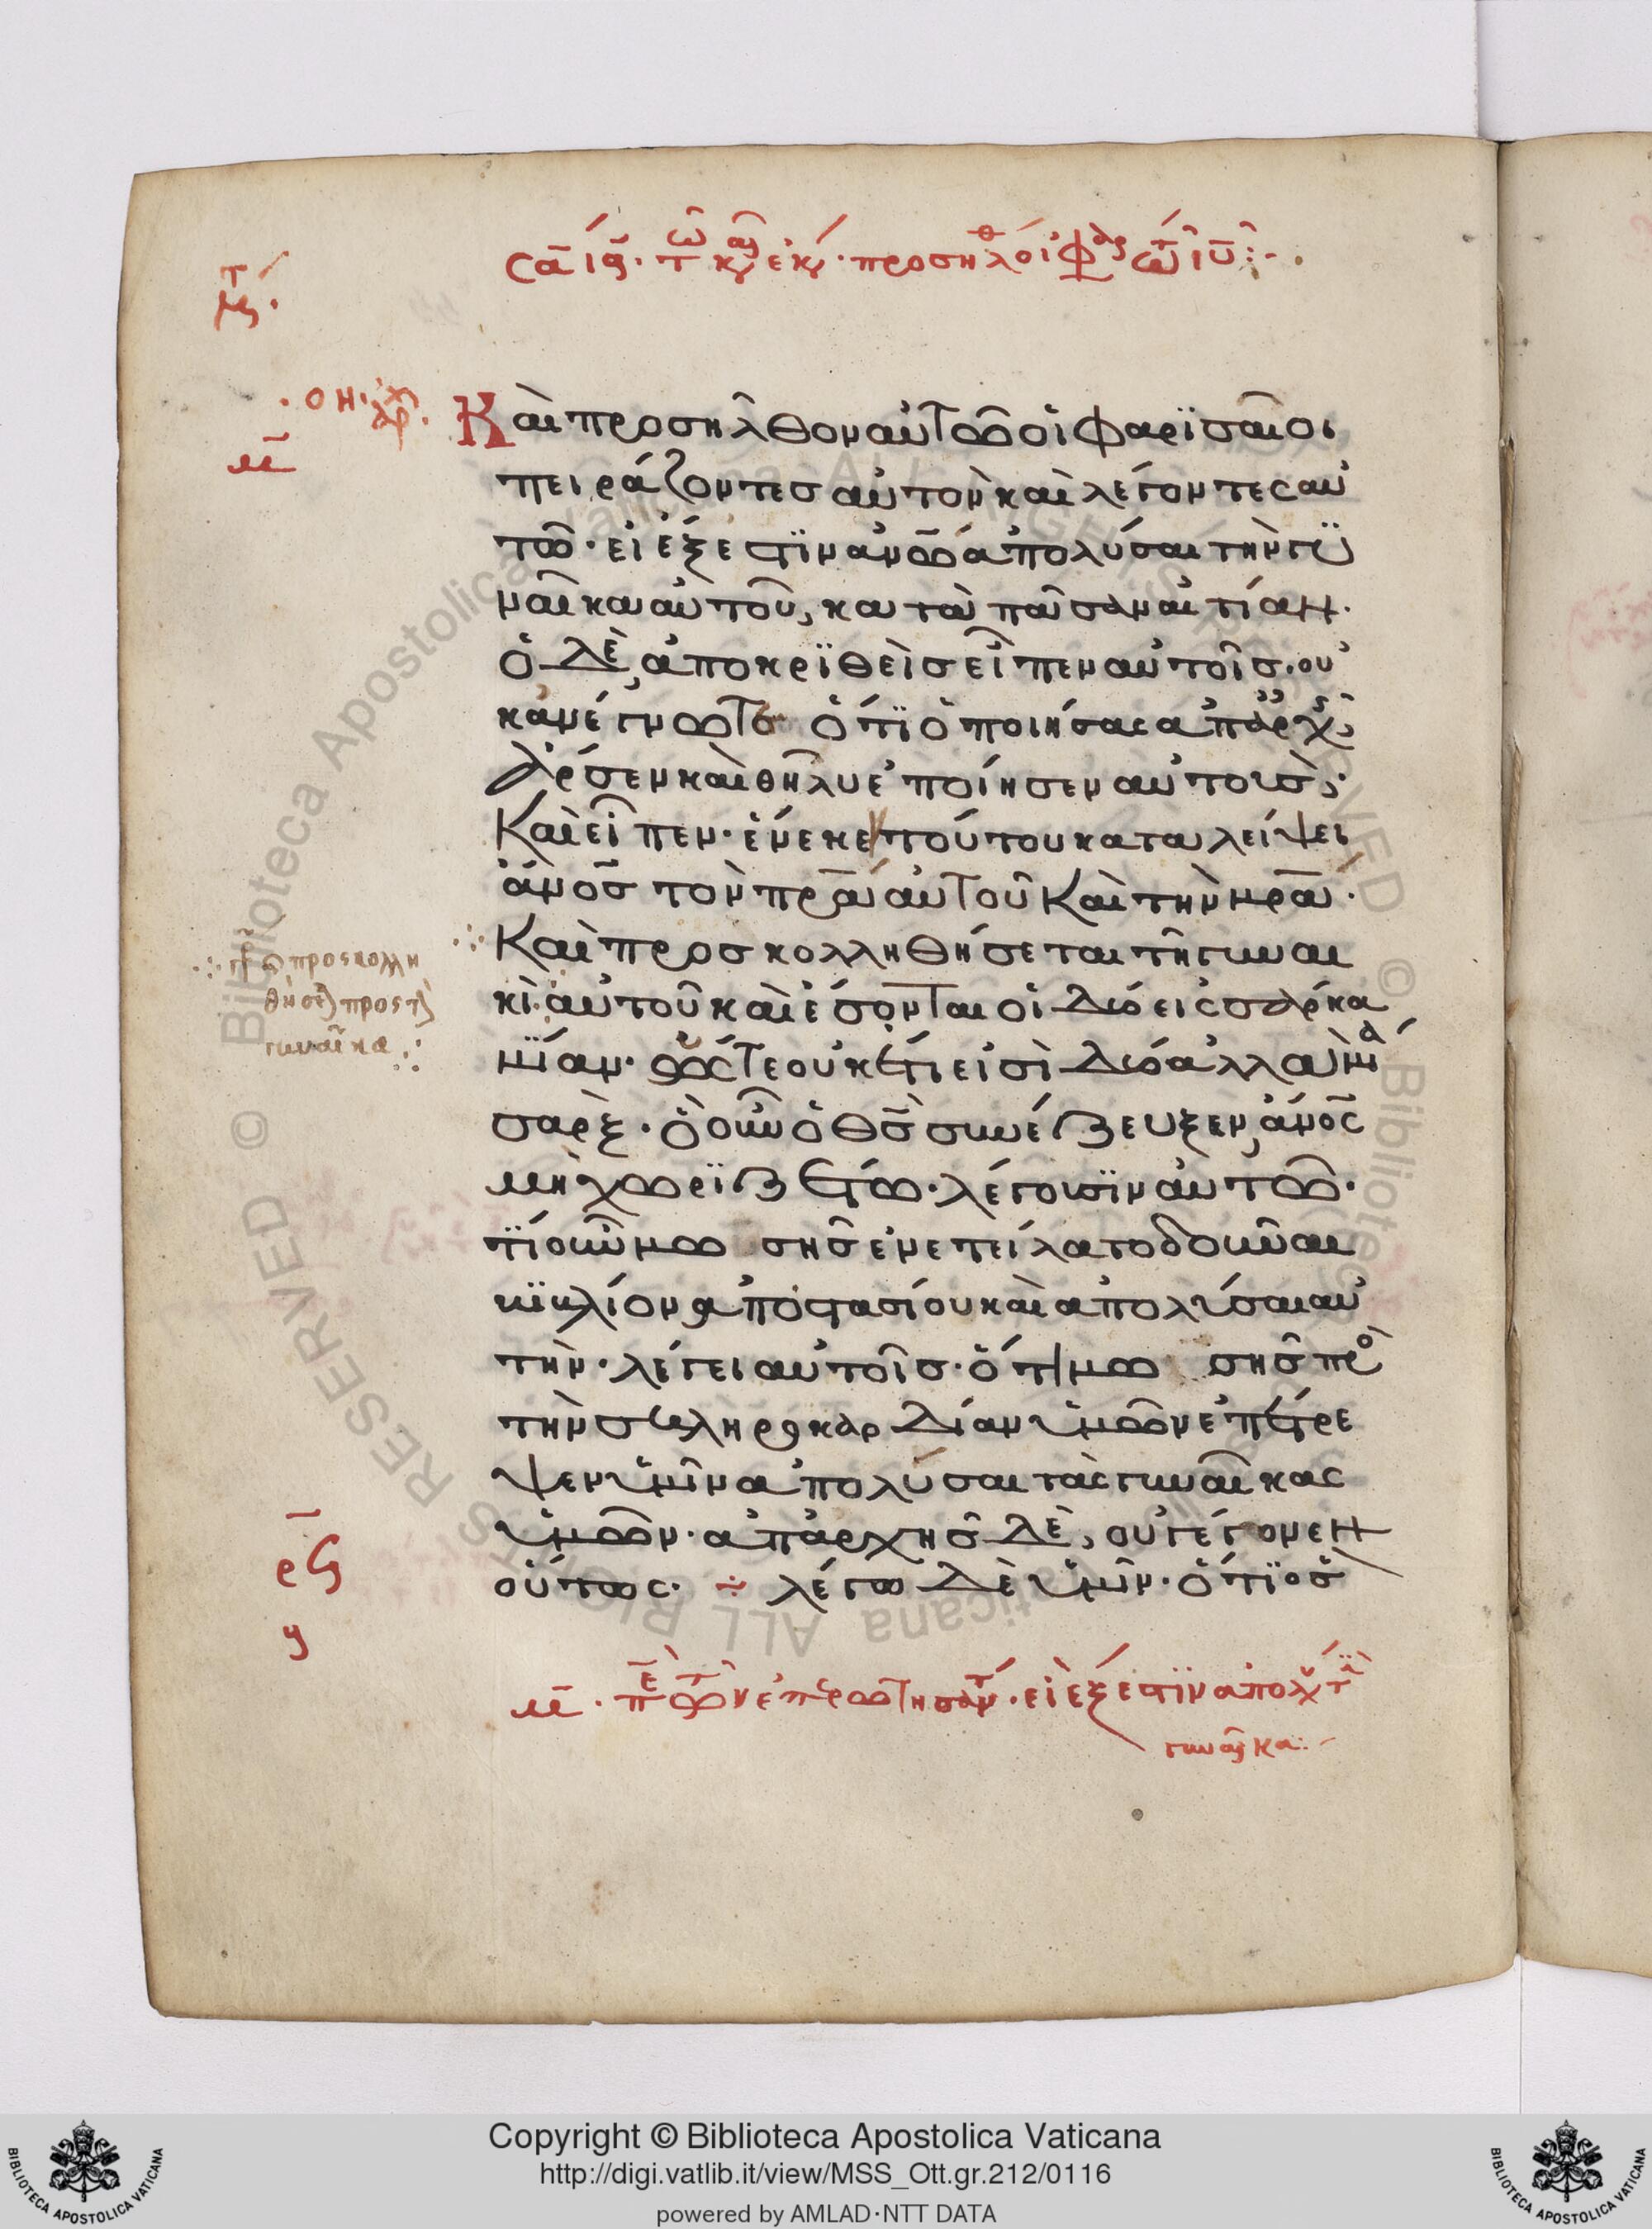 Καὶ προσῆλθον αὐτῶ οἱ φαρϊσαῖοι
πειράζοντες αὐτὸν καὶ λέγοντες αὐ
τῶ· εἰ ἔξεστϊν ἀνῶ ἀπολύσαι τὴν γυ
ναῖκα αὐτοῦ, κατὰ πᾶσαν αἰτίαν.
ὁ δὲ, ἀποκρϊθεὶς εἶπεν αὐτοῖς· οὐ
κ ἀνέγνωτε ὅτϊ ὁ ποιήσας ἀπ' ἀρχ
ἄρσεν καὶ θῆλυ ἐποίησεν αὐτους·
Καὶ εἶπεν· ἕνεκεν τούτου καταλείψει
ἄνος τὸν πρα αὐτοῦ Καὶ τὴν μρα·
Καὶ προσκολληθήσεται τῆ γυναι
κὶ αὐτοῦ καὶ ἔσονται οἱ δύο εἰς σάρκα
μΐαν· ὥστε οὐκέτι εἰσὶ δύο ἀλλὰ μ
σὰρξ· ὃ οὖν ὁ θς συνέζευξεν, ἄνος
μὴ χωρϊζέτω· λέγουσϊν αὐτῶ·
τΐ οὖν μωσῆς ἐνετείλατο δοῦναι
βϊβλίον ἀποστασίου καὶ ἀπολύσαι αὐ
τὴν· λέγει αὐτοῖς· ὅτι μωσῆς πρὸ
τὴν σκληροκαρδίαν ὑμῶν ἐπέτρε
ψεν ὑμῖν ἀπολύσαι τὰς γυναῖκας
ὑμῶν· ἀπ' ἀρχῆς δὲ, οὐ γέγονεν
οὕτως· ÷ λέγω δὲ ὑμῖν· ὅτϊ ὃς
προσκολλη
θήσετ προς τ
γυναῖκα
με
εἰ ἔξεστϊν ἀπολ τ
γυναῖκα
Copyright © Biblioteca Apostolica Vaticana
http://digi.vatlib.it/view/MSS_Ott.gr.212/0116
powered by AMLAD·NTT DATA
BIBLIOTECA APOSTOLICA VATICANA
BIBLIOTECA APOSTOLICA VATICANA